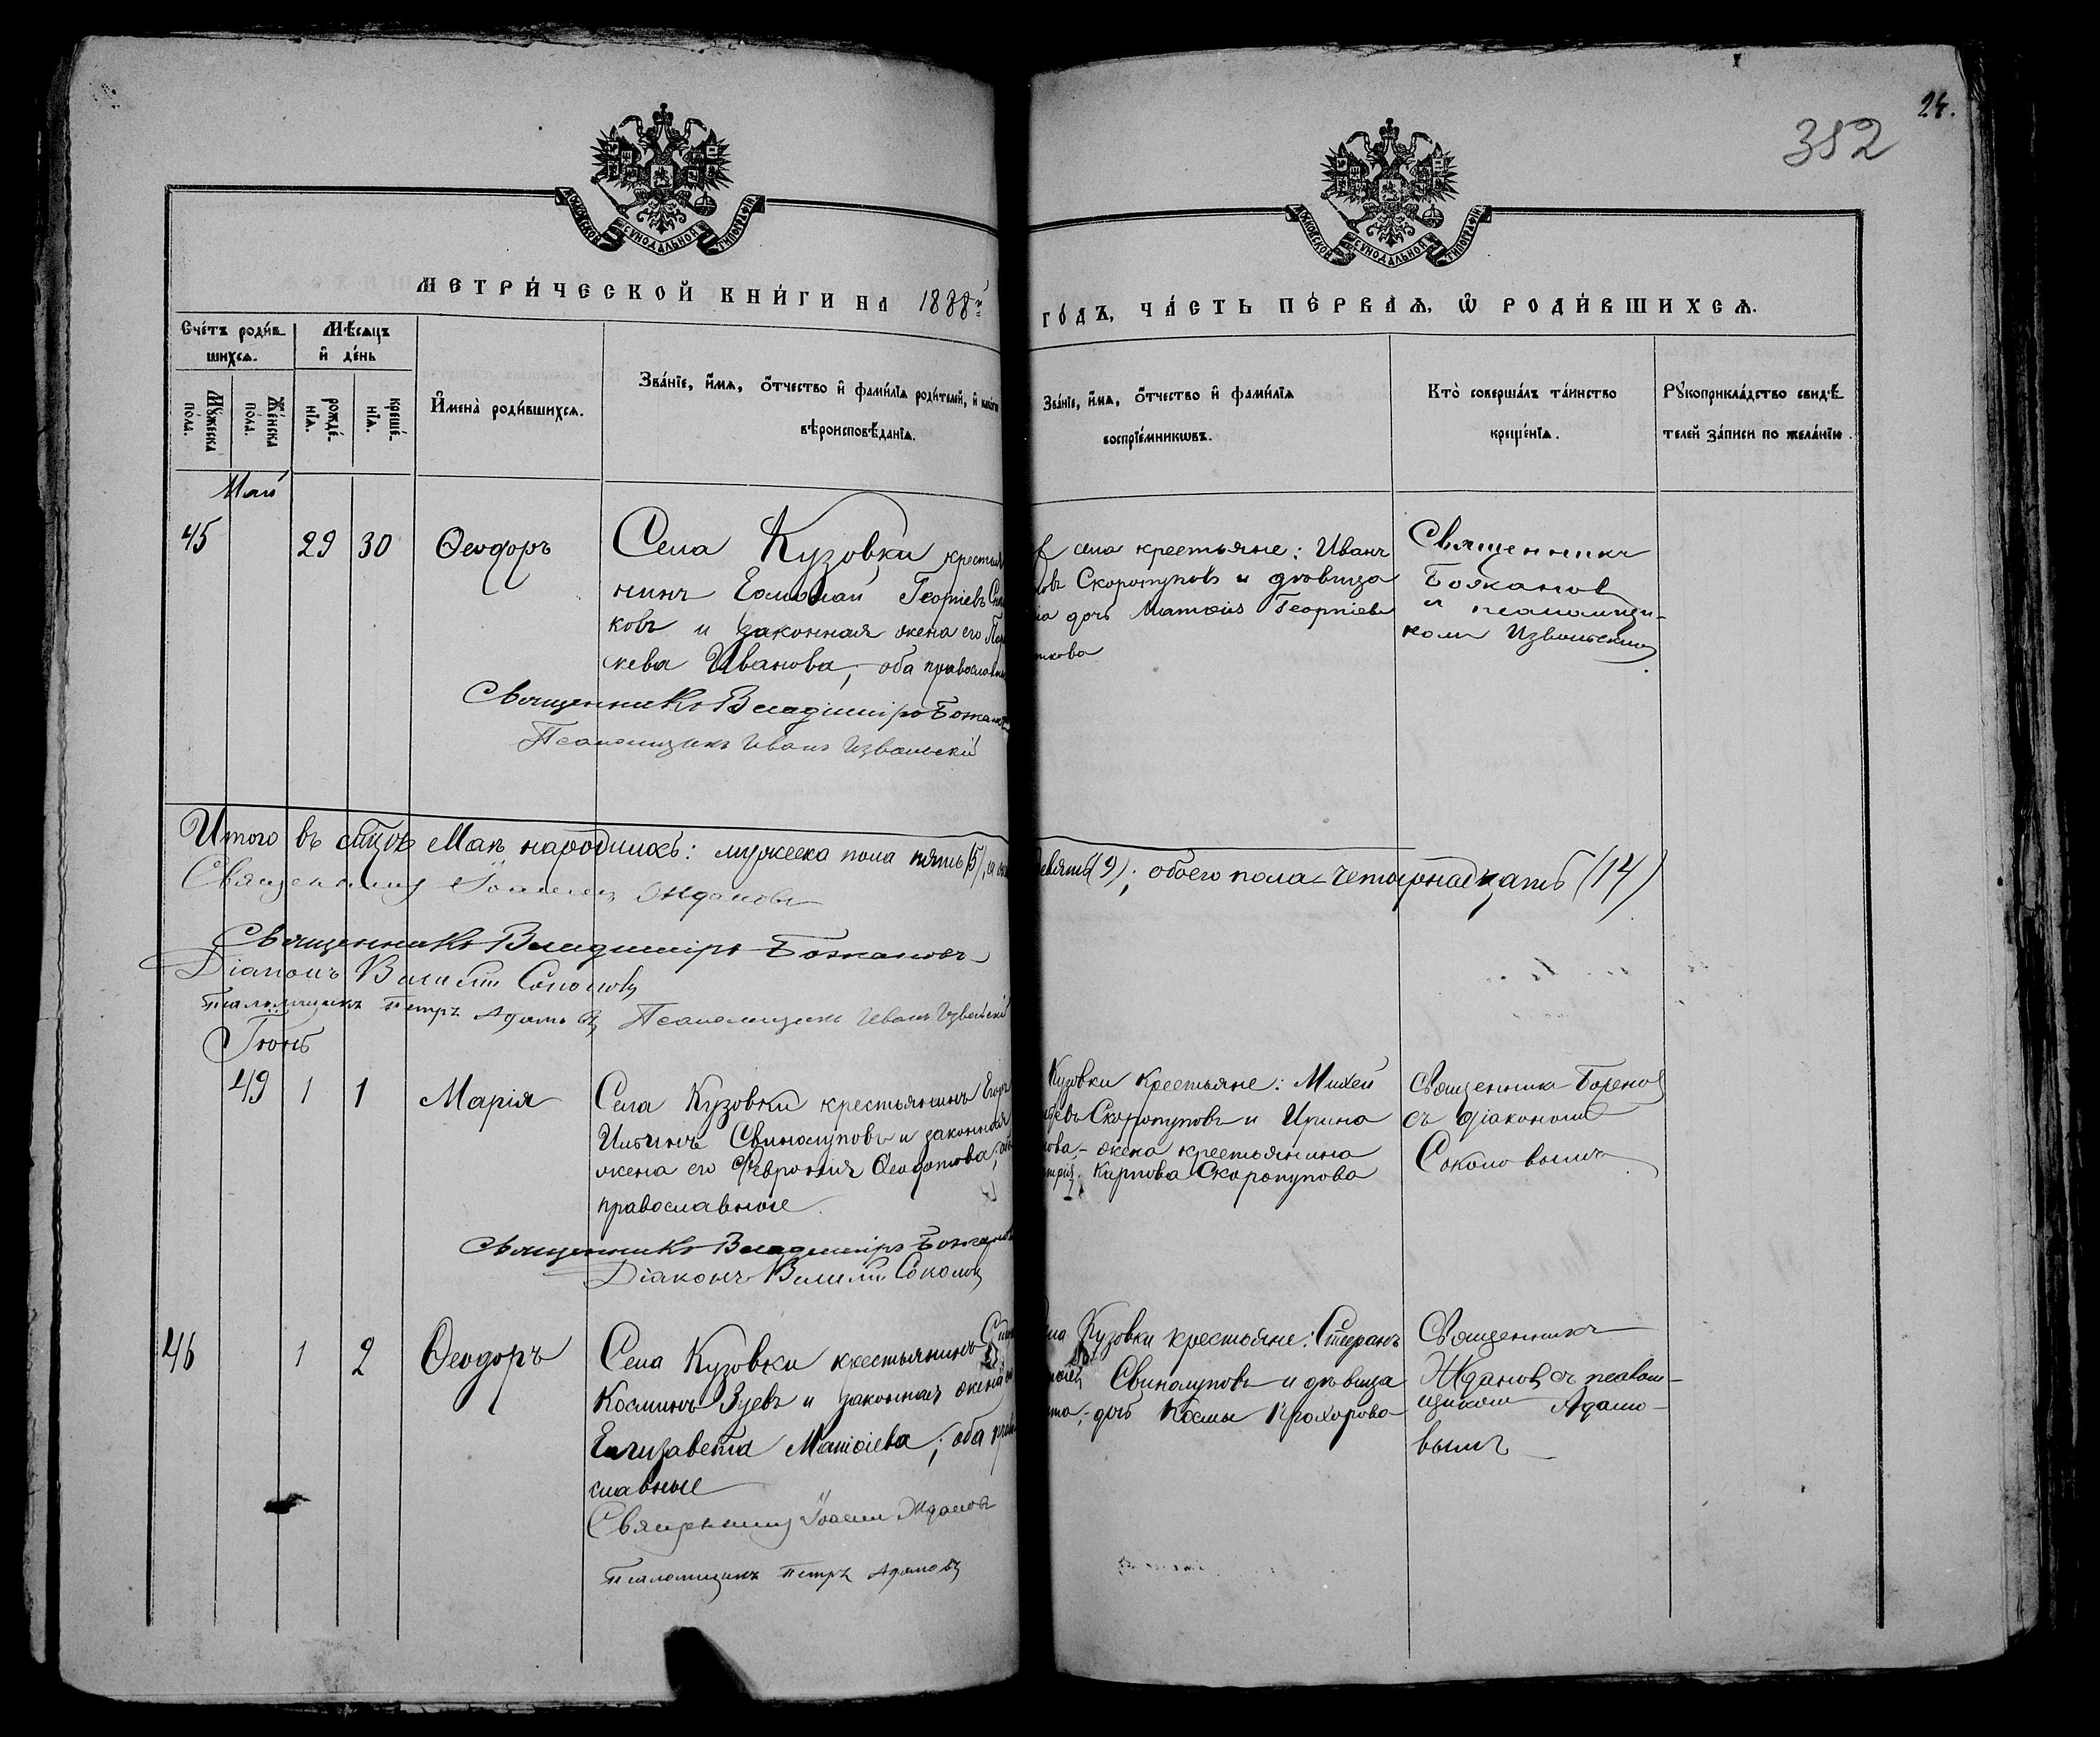 24.
352
МОСКОВСКОЙ СѴНОДАЛЬНОЙ ТИПОГРАФІИ
МОСКОВСКОЙ СѴНОДАЛЬНОЙ ТИПОГРАФІИ
МЕТРИ́ЧЕСКОЙ КНИ́ГИ НА 1888й
ГО́ДЪ, ЧА́СТЬ ПЕ́РВАѦ, Ѡ РОДИ́ВШИХСѦ.
Сче́тъ роди́в-
шихсѧ.
Мꙋ́жеска по́ла.
Же́нска по́ла.
Мѣ́сѧцъ
и҆ де́нь
рожде́-
нїѧ.
креще́-
нїѧ.
И҆мена̀ роди́вшихсѧ.
Зва́нїе, и҆́мѧ, ѻ҆́тчество и҆ фами́лїѧ роди́телей, и҆
вѣроисповѣ́данїѧ.
Зва́нїе, и҆́мѧ, ѻ҆́тчество и҆ фами́лїѧ
воспрїе́мникѡвъ.
Кто̀ соверша́лъ та́инство
креще́нїѧ.
Рꙋкоприкла́дство свидѣ́-
телей за́писи по жела́нїю.
Май
45 29 30 Ѳеодоръ
Села Кузовки крестья
нинъ Георгіевъ
ковъ и законная жена его
кева Иванова, оба православн
Священникъ Владиміръ Божанов
Псаломщикъ Иванъ Извольскій
села крестьяне: Иванъ
Скоропуповъ и дѣвица
дочь Матѳія Георгіев
кова
Священникъ
Божановъ
и псаломщи-
комъ Извольскимъ
Итого въ Маѣ народилось: мужеска пола пять (5), а
девять (9); обоего пола - четырнадцать (14)
Священникъ Іоаннъ Ждановъ
Священникъ Владиміръ Божановъ
Діаконъ Василій Соколовъ
Псаломщикъ Петръ Адамовъ Псаломщикъ Иванъ Извольскій
Іюнь
49 1 1 Марія
Села Кузовки крестьянинъ Егоръ
Ильинъ Свинолуповъ и законная
жена его Феврония Ѳеодотова,
православные
Священникъ Владиміръ Божанов
Діаконъ Василій Соколовъ
Кузовки крестьяне: Михей
Скоропуповъ и Ирина
- жена крестьянина
Карпова Скоропупова
Священникъ
съ діакономъ
Соколовымъ
46 1 2 Ѳеодоръ
Села Кузовки крестьянинъ
Космынъ Зуевъ и законная жена
Елизавета Матѳіева; оба
славные
Священникъ Іоаннъ Ждановъ
Псаломщикъ Петръ Адамовъ
Кузовки крестьяне: Стефанъ
Свинолуповъ и дѣвица
- дочь Космы Прохорова
Священникъ
Ждановъ съ псалом-
щикомъ Адамо-
вымъ